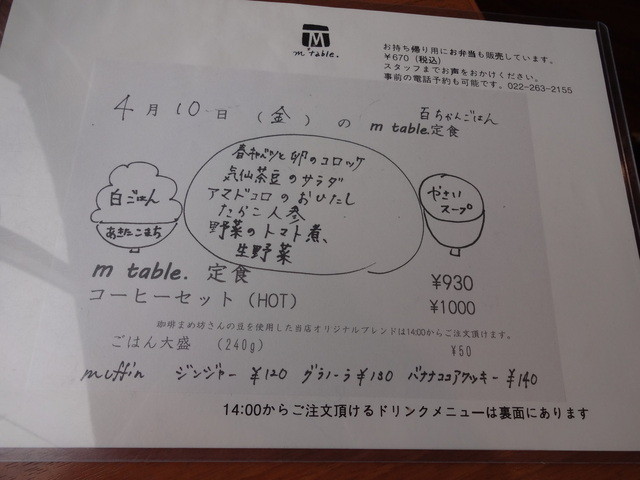 M
m table.
お持ち帰り用にお弁当も販売しています。
¥670（税込）
スタッフまでお声をおかけください。
事前の電話予約も可能です。022-263-2155
4月10日（金）の 百ちかんごはん
m table.定食
春キャベツと卵のコロッケ
気仙茶豆のサラダ
アマドコロのおひたし
たらこ人参
野菜のトマト煮、
生野菜
白ごはん
あきたこまち
やさい
スープ
m table. 定食 ¥930
コーヒーセット（HOT） ¥1000
珈琲まめ坊さんの豆を使用した当店オリジナルブレンドは14:00からご注文頂けます。
ごはん大盛 （240g） ¥50
muffin ジンジャー ¥120 グラノーラ ¥130 バナナココアクッキー ¥140
14:00からご注文頂けるドリンクメニューは裏面にあります